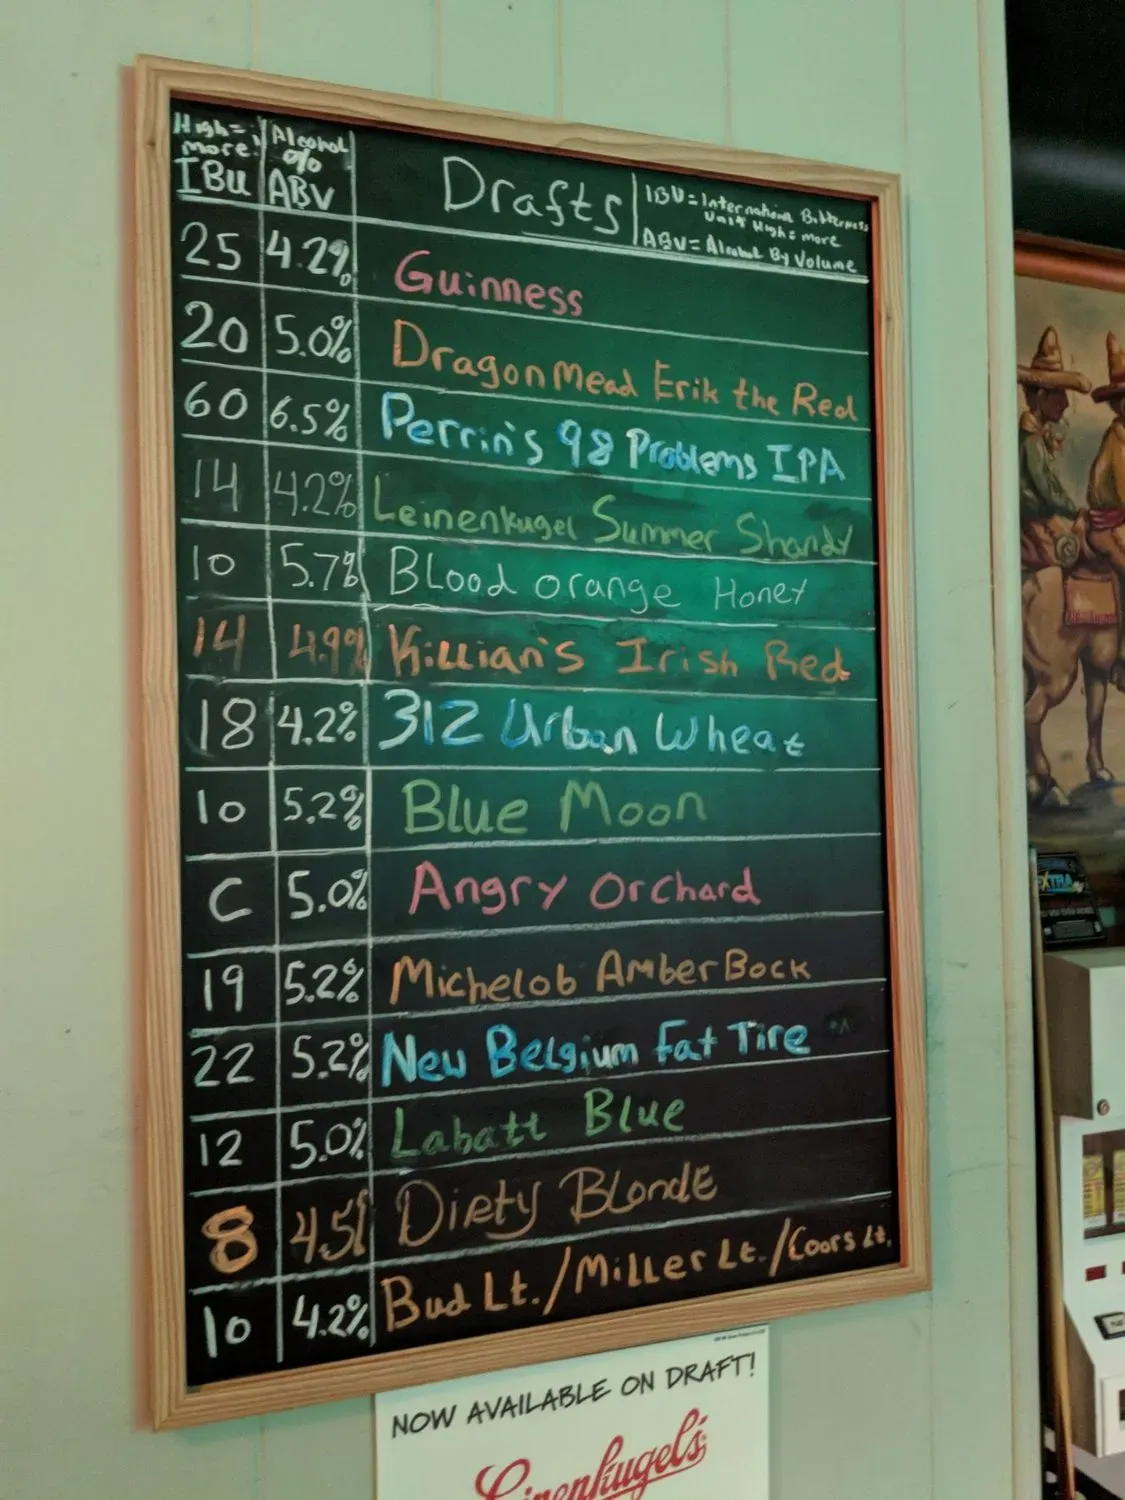 High = more! Alcohol %
IBU ABV Drafts
IBU = Internationa Bitterness
Unit High = more
ABV = Alcohol By Volume
25 4.2% Guinness
20 5.0% Dragonmead Erik the Red
60 6.5% Perrin's 98 Problems IPA
14 4.2% Leinenkugel Summer Shandy
10 5.7% Blood orange Honey
14 4.9% Killian's Irish Red
18 4.2% 312 Urban Wheat
10 5.2% Blue Moon
C 5.0% Angry Orchard
19 5.2% Michelob Amber Bock
22 5.2% New Belgium Fat Tire
12 5.0% Labatt Blue
8 4.5% Dirty Blonde
10 4.2% Bud Lt./Miller Lt./Coors Lt.
NOW AVAILABLE ON DRAFT!
Leinenkugel's
EXTRA